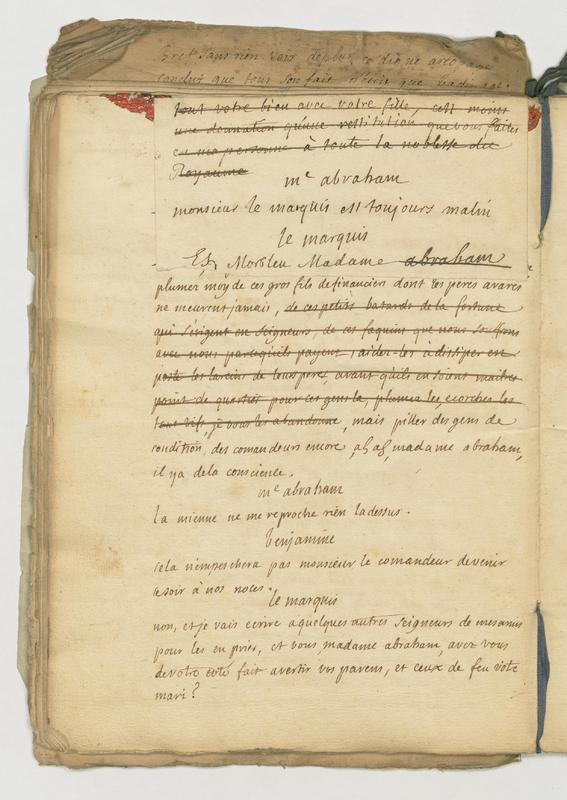 Bref sans rien voir
conclut que tout son fait n'étoit que badinage.
tout votre bien avec votre fille, cest moins
une donnation qu'une restitution que vous faites
en ma personne à toute la noblesse du
Royaume
me abraham
monsieur le marquis est toujours malin
le marquis
Eh, Morbleu Madame abraham
plumez moy de ces gros fils de financiers dont les peres avares
ne meurent jamais, de ces petits batards de la fortune
qui s'érigent en seigneurs, de ces faquins que nous souffrons
avec nous parcequ'ils payent, aidez-les à dissiper en
poste les larcins de leurs pere, avant qu'ils en soient maitres
point de quartier pour ces gens la, plumez les, ecorchez les
tout vifs, je vous les abandonne, mais piller des gens de
condition, des comandeurs encore, ah ah, madame abraham,
il ya dela conscience.
me abraham
la mienne ne me reproche rien la dessus.
benjamine
cela n'empeschera pas monsieur le comandeur devenir
ce soir à nos noces.
le marquis
non, et je vais ecrire a quelques autres seigneurs de mes amis
pour les en prier, et vous, madame abraham, avez vous
de votre coté fait avertir vos parens, et ceux de feu votre
mari?